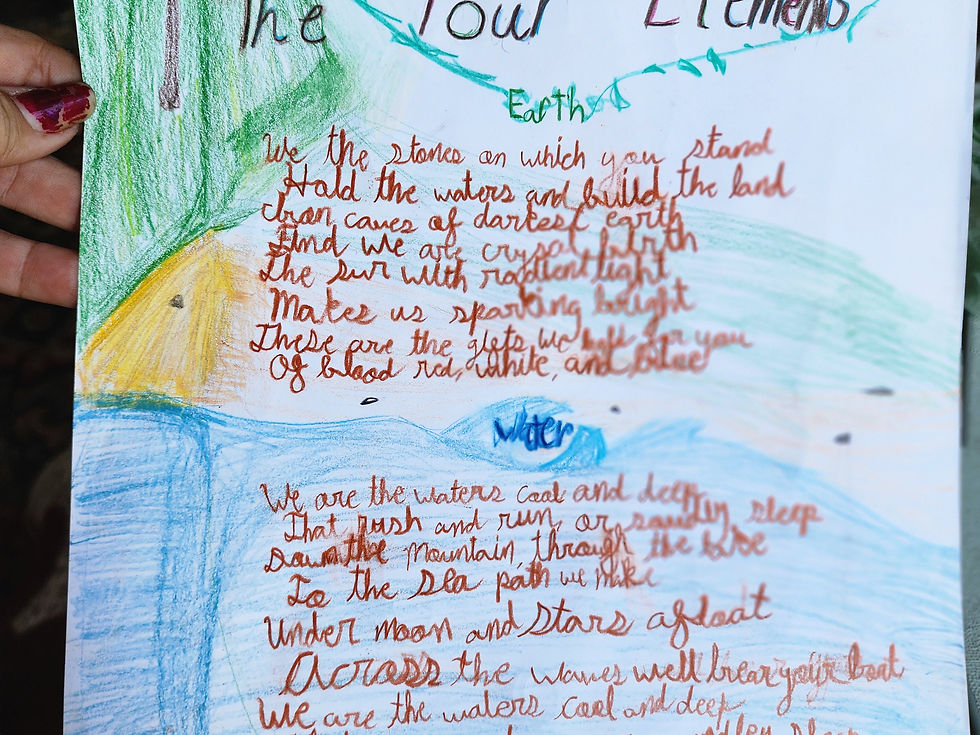 The Four Elements
Earth
We the stones on which you stand
Hold the waters and build the land
from caves of darkest earth
And we are crysal birth
the sun with radient light
Makes us sparking bright
These are the gifts we hold for you
Of blood red, white, and blue
Water
We are the waters cool and deep
That rush and run, or soundly sleep
Down the mountain, through the
To the sea path we make
Under moon and Stars afloat
Across the waves well bear your boat
We are the waters cool and deep
sleep